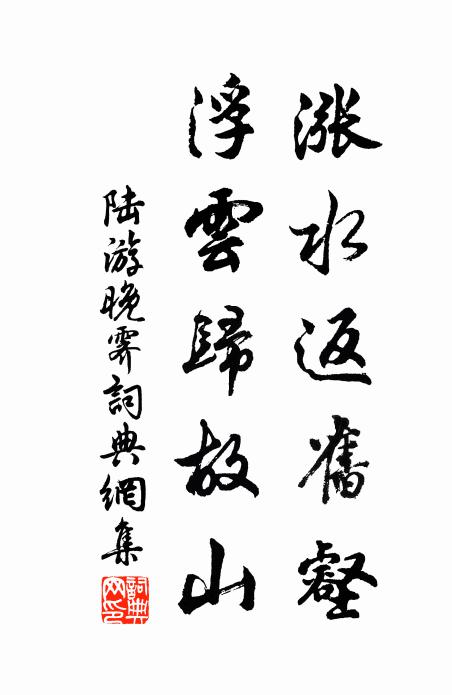 漲水返舊壑
浮雲歸故山
陸游晚霽詞典網集
詞典網印